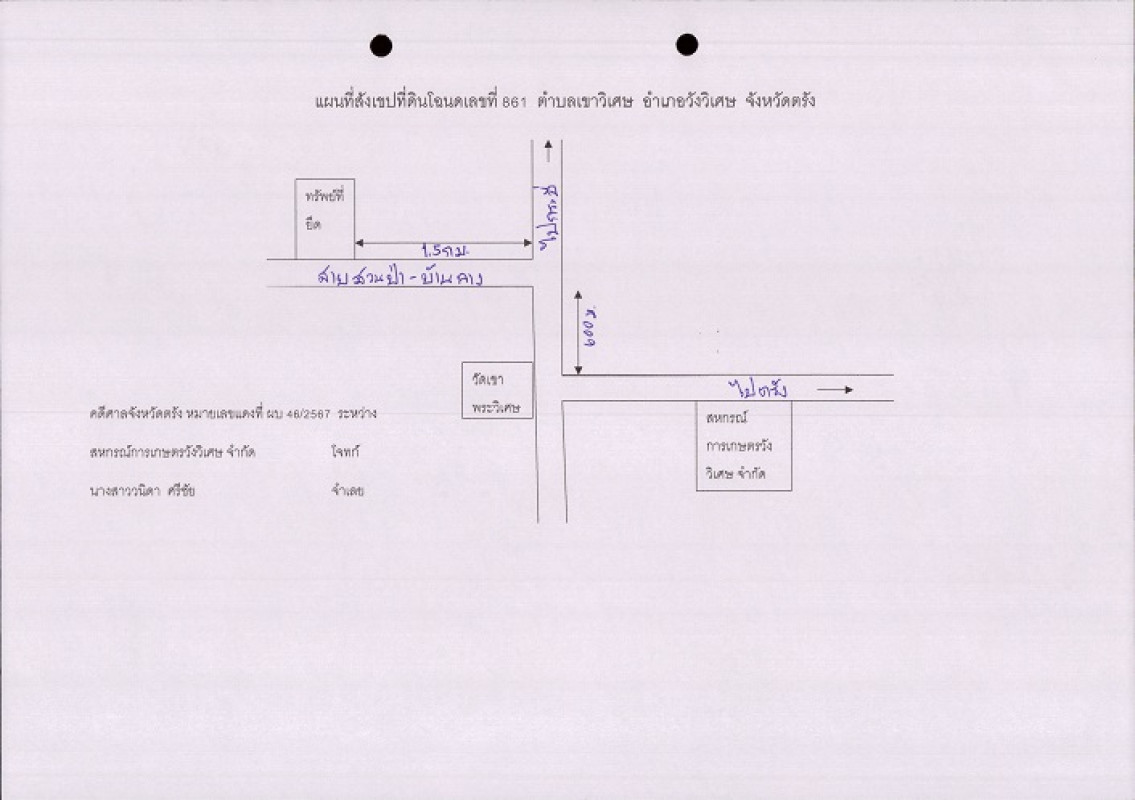 แผนที่สังเขปที่ดินโฉนดเลขที่ 861 ตำบลเขาวิเศษ อำเภอวังวิเศษ จังหวัดตรัง
ไปกระบี่
ทรัพย์ที่
ยึด
1.5 กม.
สาย สวนป่า - บ้านคลาง
600 ม.
วัดเขา
พระวิเศษ
ไปตรัง
สหกรณ์
การเกษตรวัง
วิเศษ จำกัด
คดีศาลจังหวัดตรัง หมายเลขแดงที่ ผบ 46/2567 ระหว่าง
สหกรณ์การเกษตรวังวิเศษ จำกัด โจทก์
นางสาววนิดา ศรีชัย จำเลย